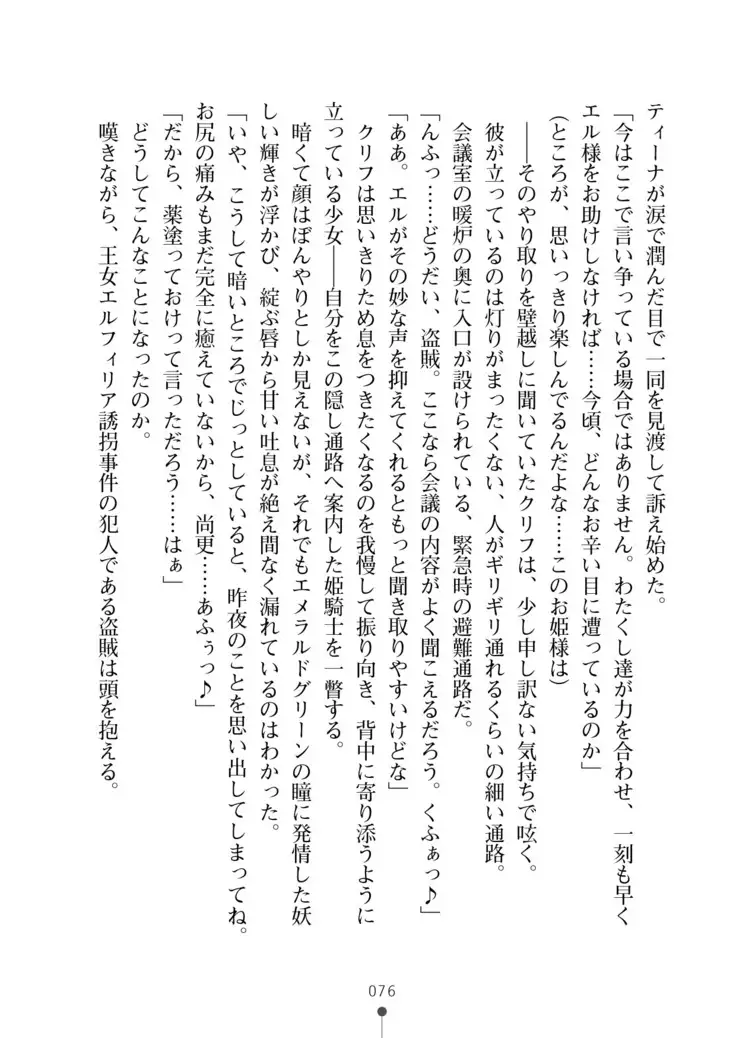 ティーナが涙で潤んだ目で一同を見渡して訴え始めた。
「今はここで言い争っている場合ではありません。わたくし達が力を合わせ、一刻も早く
エル様をお助けしなければ……今頃、どんなお辛い目に遭っているのか」
(ところが、思いっきり楽しんでるんだよな……このお姫様は)
――そのやり取りを壁越しに聞いていたクリフは、少し申し訳ない気持ちで呟く。
彼が立っているのは灯りがまったくない、人がギリギリ通れるくらいの細い通路。
会議室の暖炉の奥に入口が設けられている、緊急時の避難通路だ。
「んふっ……どうだい、盗賊。ここなら会議の内容がよく聞こえるだろう。くふぁっ♪」
「ああ。エルがその妙な声を抑えてくれるともっと聞き取りやすいけどな」
クリフは思いきりため息をつきたくなるのを我慢して振り向き、背中に寄り添うように
立っている少女――自分をこの隠し通路へ案内した姫騎士を一瞥する。
暗くて顔はぼんやりとしか見えないが、それでもエメラルドグリーンの瞳に発情した妖
しい輝きが浮かび、綻ぶ唇から甘い吐息が絶え間なく漏れているのはわかった。
「いや、こうして暗いところでじっとしていると、昨夜のことを思い出してしまってね。
お尻の痛みもまだ完全に癒えていないから、尚更……あふぅっ♪」
「だから、薬塗っておけって言っただろう……はぁ」
どうしてこんなことになったのか。
嘆きながら、王女エルフィリア誘拐事件の犯人である盗賊は頭を抱える。
076